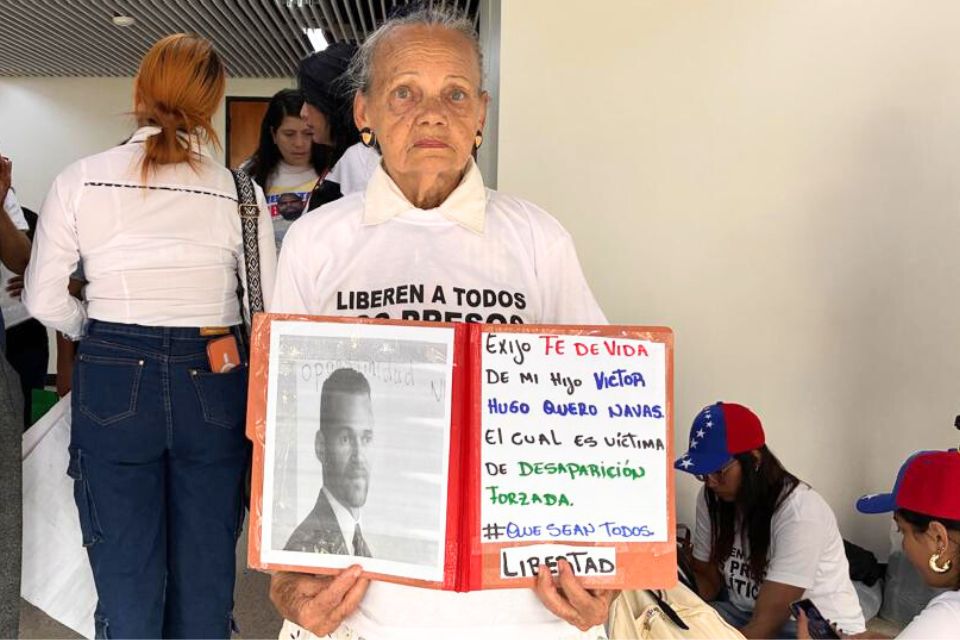 LIBEREN A TODOS
LOS PRESOS
EXIJO FE DE VIDA
DE MI HIJO VICTOR
HUGO QUERO NAVAS.
El CUAL ES VÍCTIMA
DE DESAPARICIÓN
FORZADA.
#QUE SEAN TODOS.
LIBERTAD